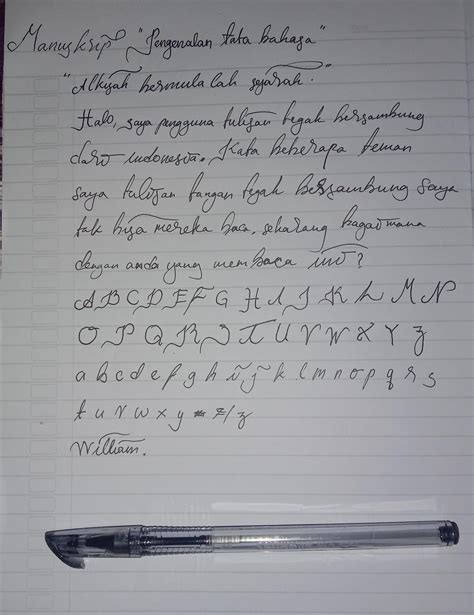 Manuskrip "Pengenalan tata bahasa"
"Alkisah bermula lah sejarah."
Halo, saya pengguna tulisan tegak bersambung
dari indonesia. Kata beberapa teman
saya tulisan tangan tegak bersambung saya
tak bisa mereka baca, sekarang bagaimana
dengan anda yang membaca ini?
A B C D E F G H I J K L M N
O P Q R S T U V W X Y Z
a b c d e f g h i j k l m n o p q r s
t u v w x y z/z
William.